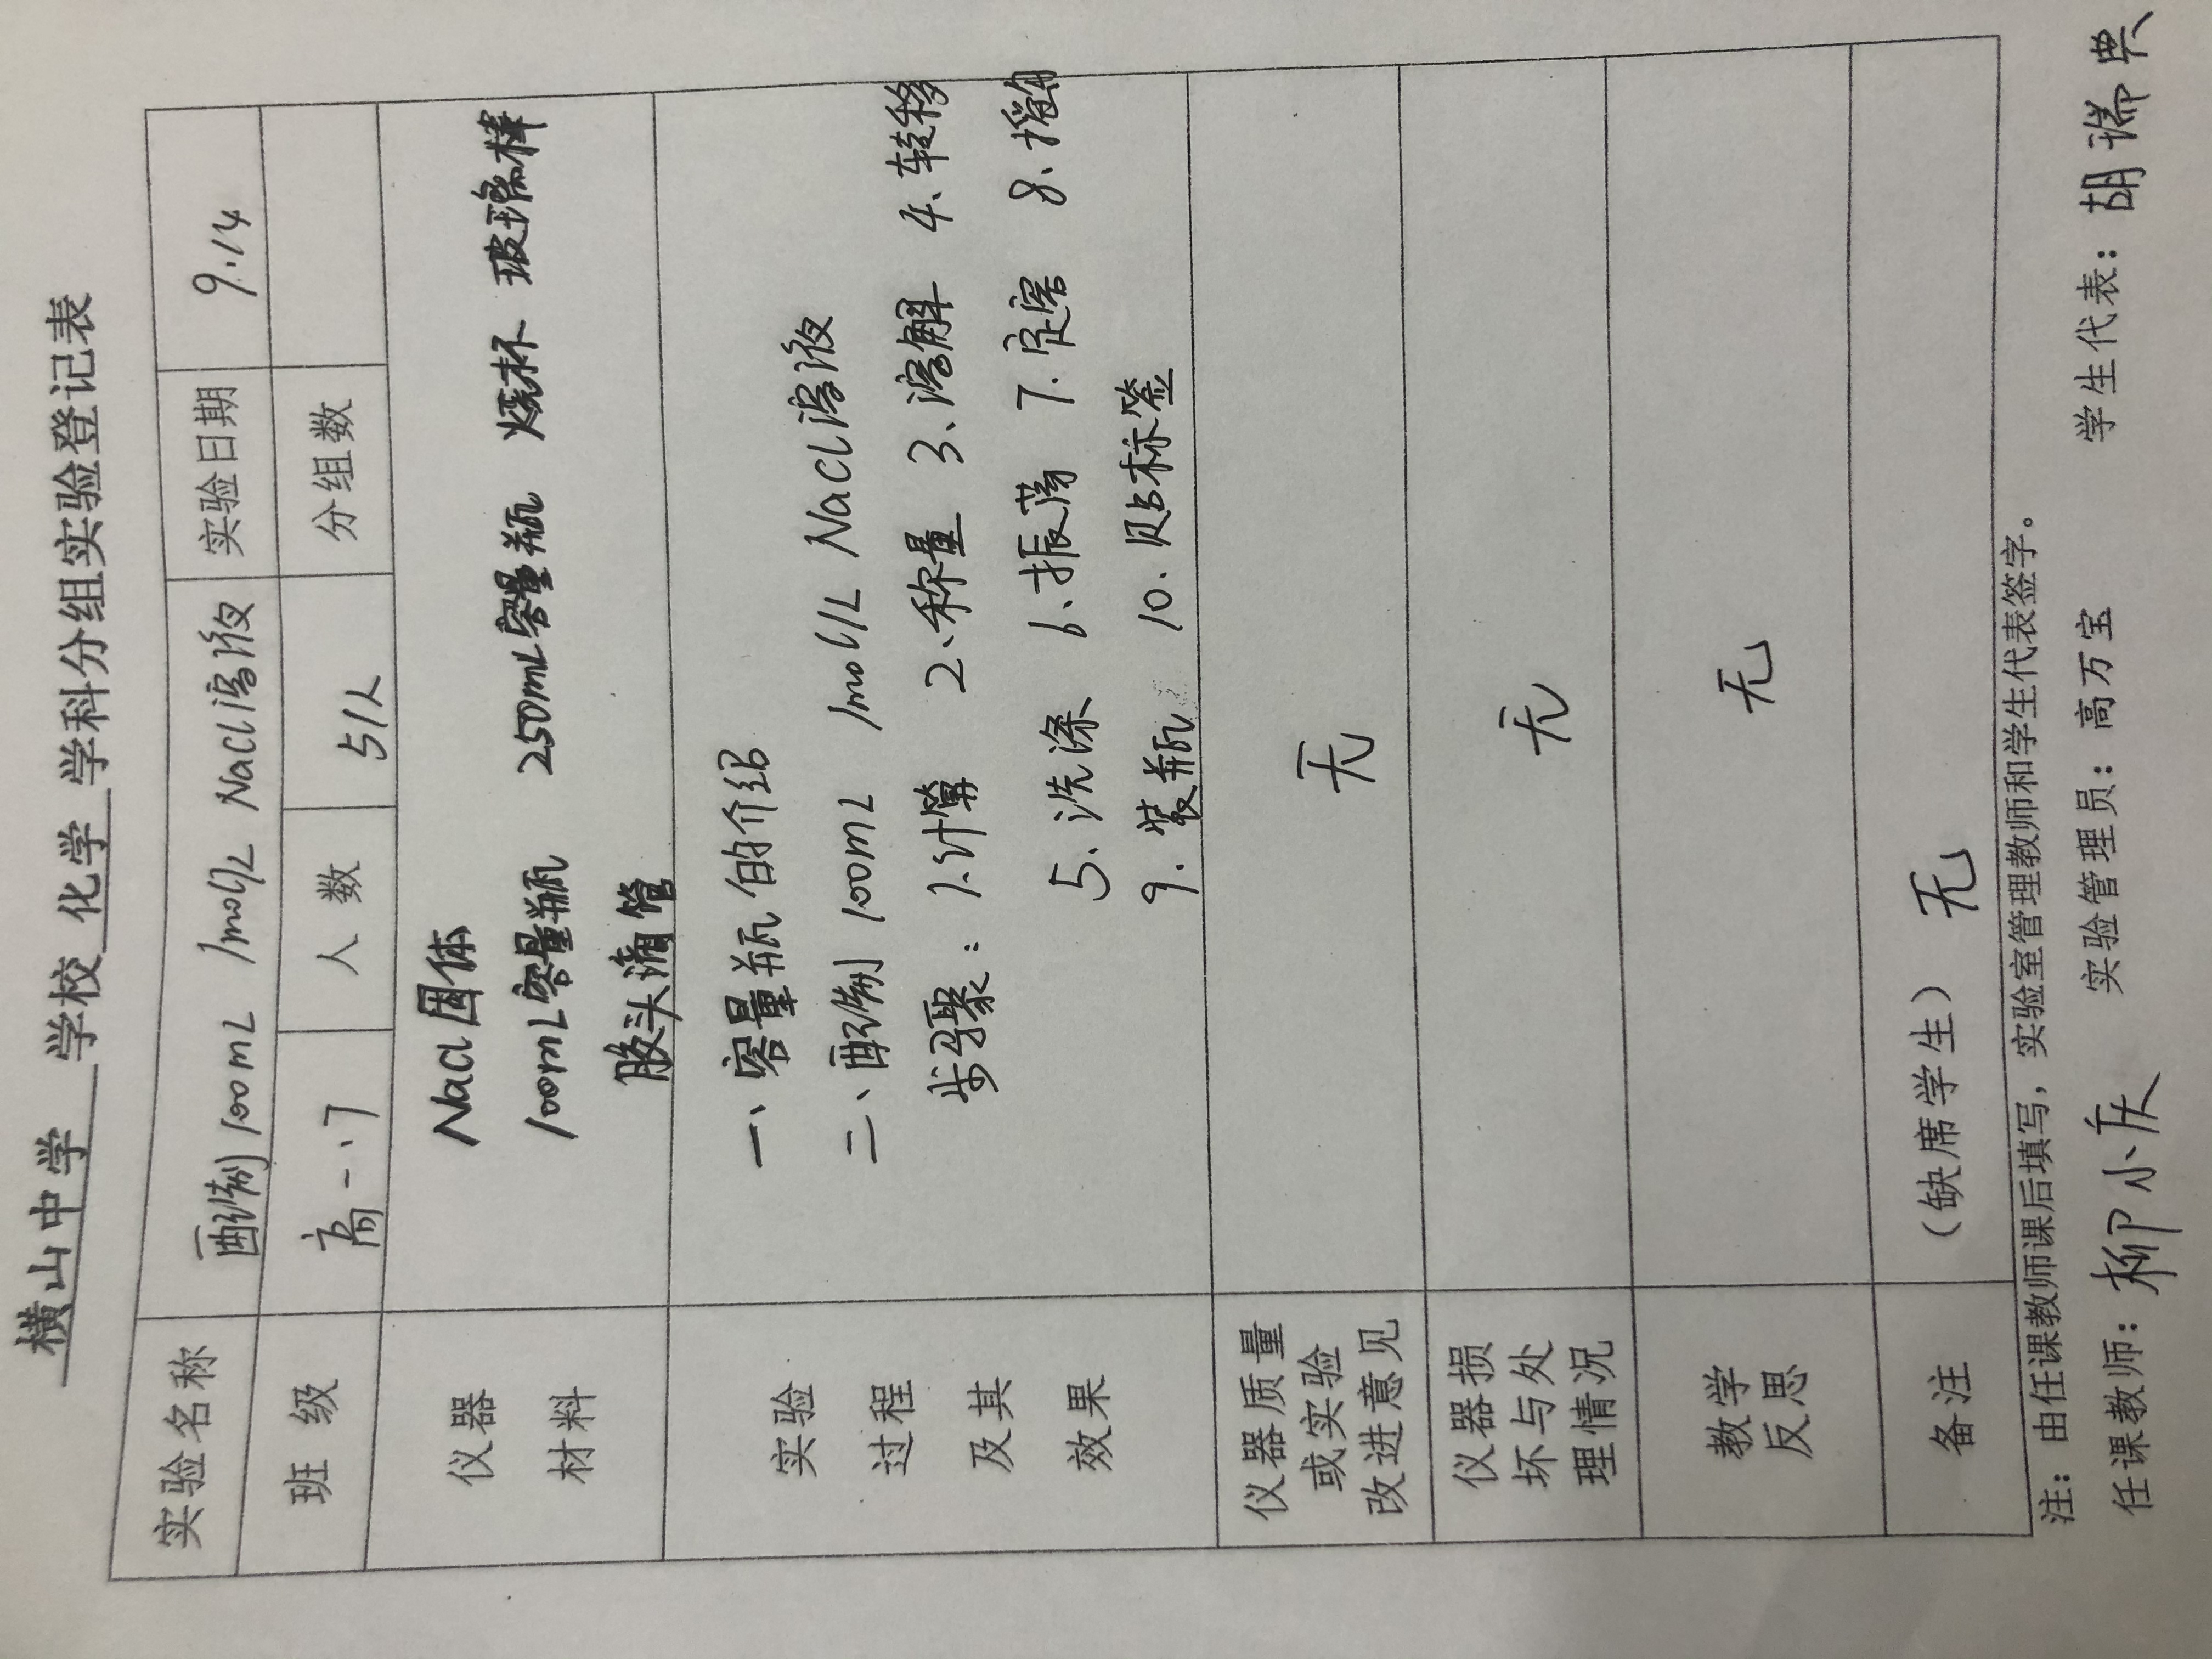 横山中学 学校 化学 学科分组实验登记表
实验名称 配制100mL 1mol/L NaCl溶液 实验日期 9.14
班级 高一.7 人数 51人 分组数
仪器材料
NaCl固体
100mL容量瓶 250mL容量瓶 烧杯 玻璃棒
胶头滴管
实验过程及其效果
一、容量瓶的介绍
二、配制100mL 1mol/L NaCl溶液
步骤：1.计算 2.称量 3.溶解 4.转移
5.洗涤 6.振荡 7.定容 8.摇匀
9.装瓶 10.贴标签
仪器质量或实验改进意见 无
仪器损坏与处理情况 无
教学反思 无
备注 （缺席学生） 无
注：由任课教师课后填写，实验室管理教师和学生代表签字。
任课教师：柳小 实验管理员：高万宝 学生代表：胡瑞典